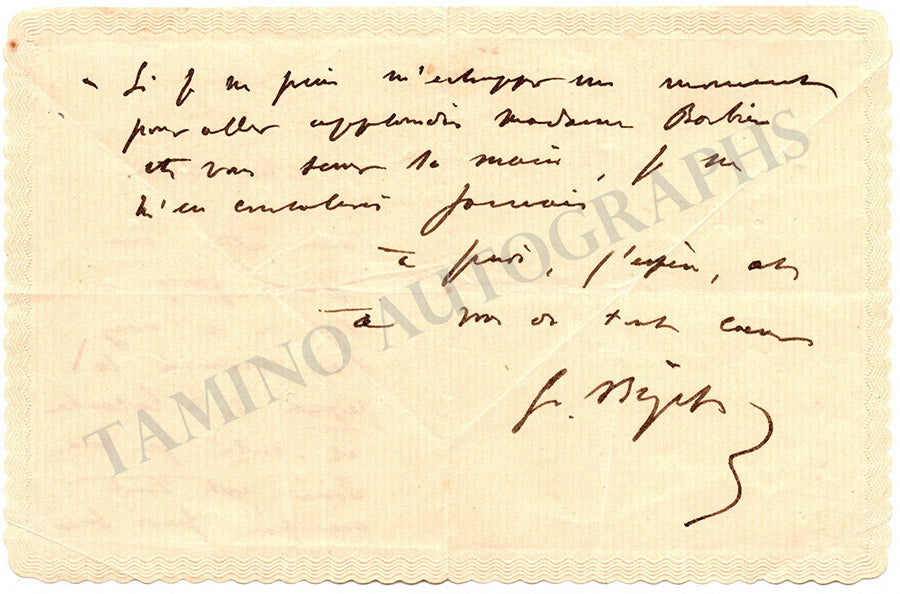 Si je ne puis m'échapper un moment
pour aller applaudir madame Barbier
et vous serrer la main, je ne
m'en consolerai jamais
à jeudi, j'espère, et
à vous de tout coeur
G. Bizet
TAMINO AUTOGRAPHS